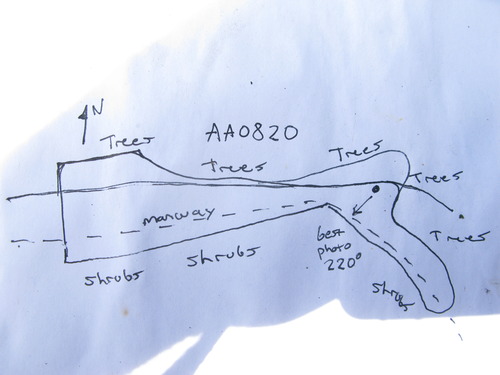 N
Trees
AA0820
Trees
Trees
Trees
manway
best
photo
220°
Trees
shrubs
shrubs
shrubs